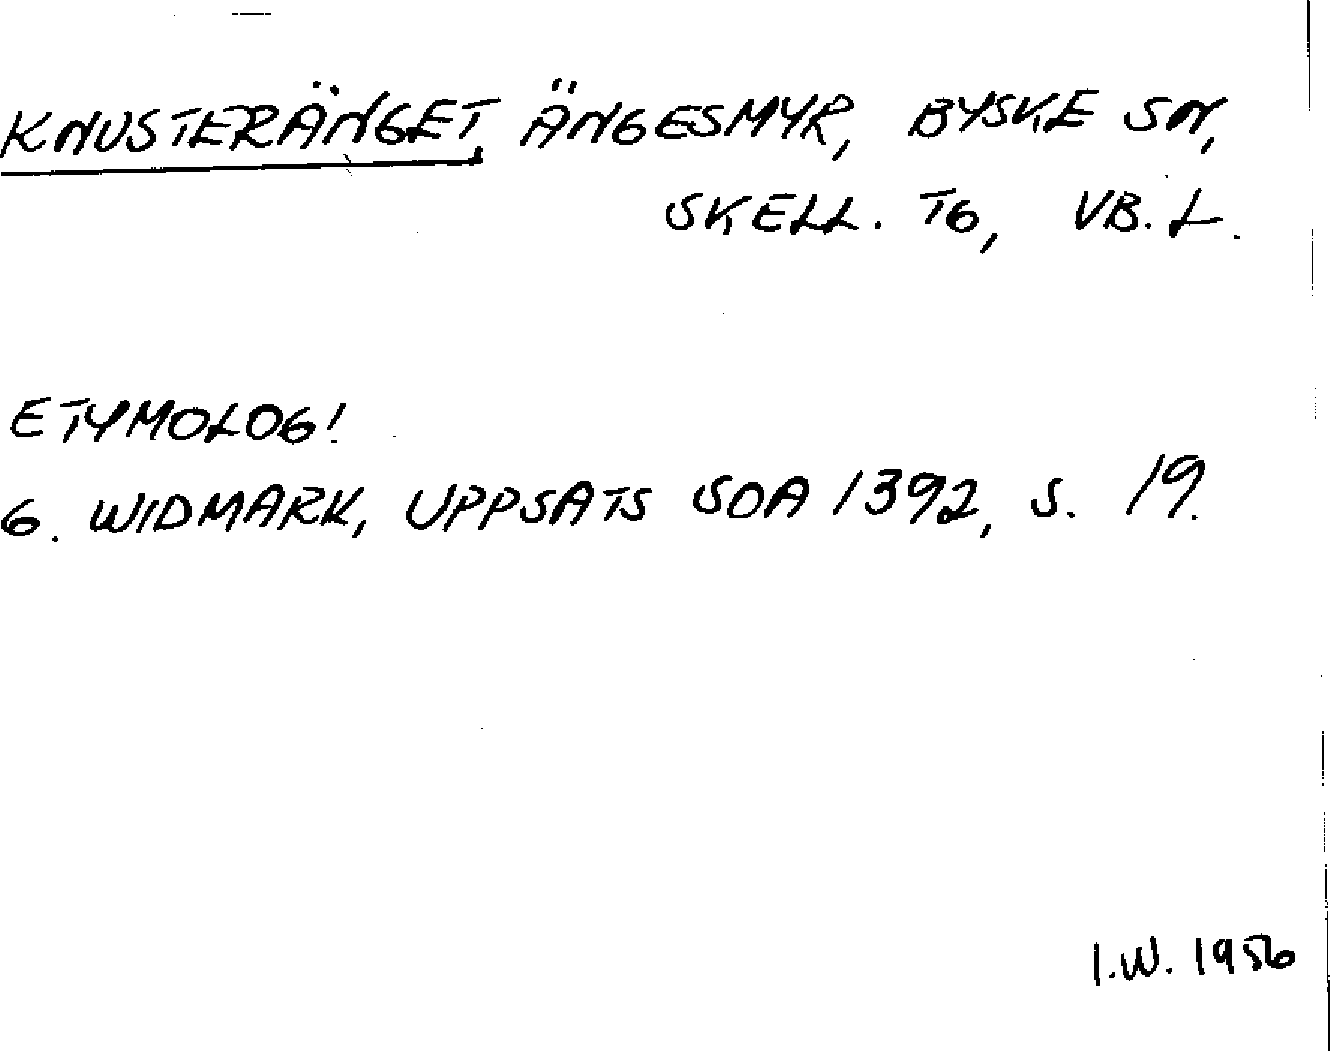 KNUSTERÄNGET, ÄNGESMYR, BYSKE SN,
SKELL. TG, VB. L.
ETYMOLOGI
G. WIDMARK, UPPSATS SOA 1392, S. 19.
I.W. 1956